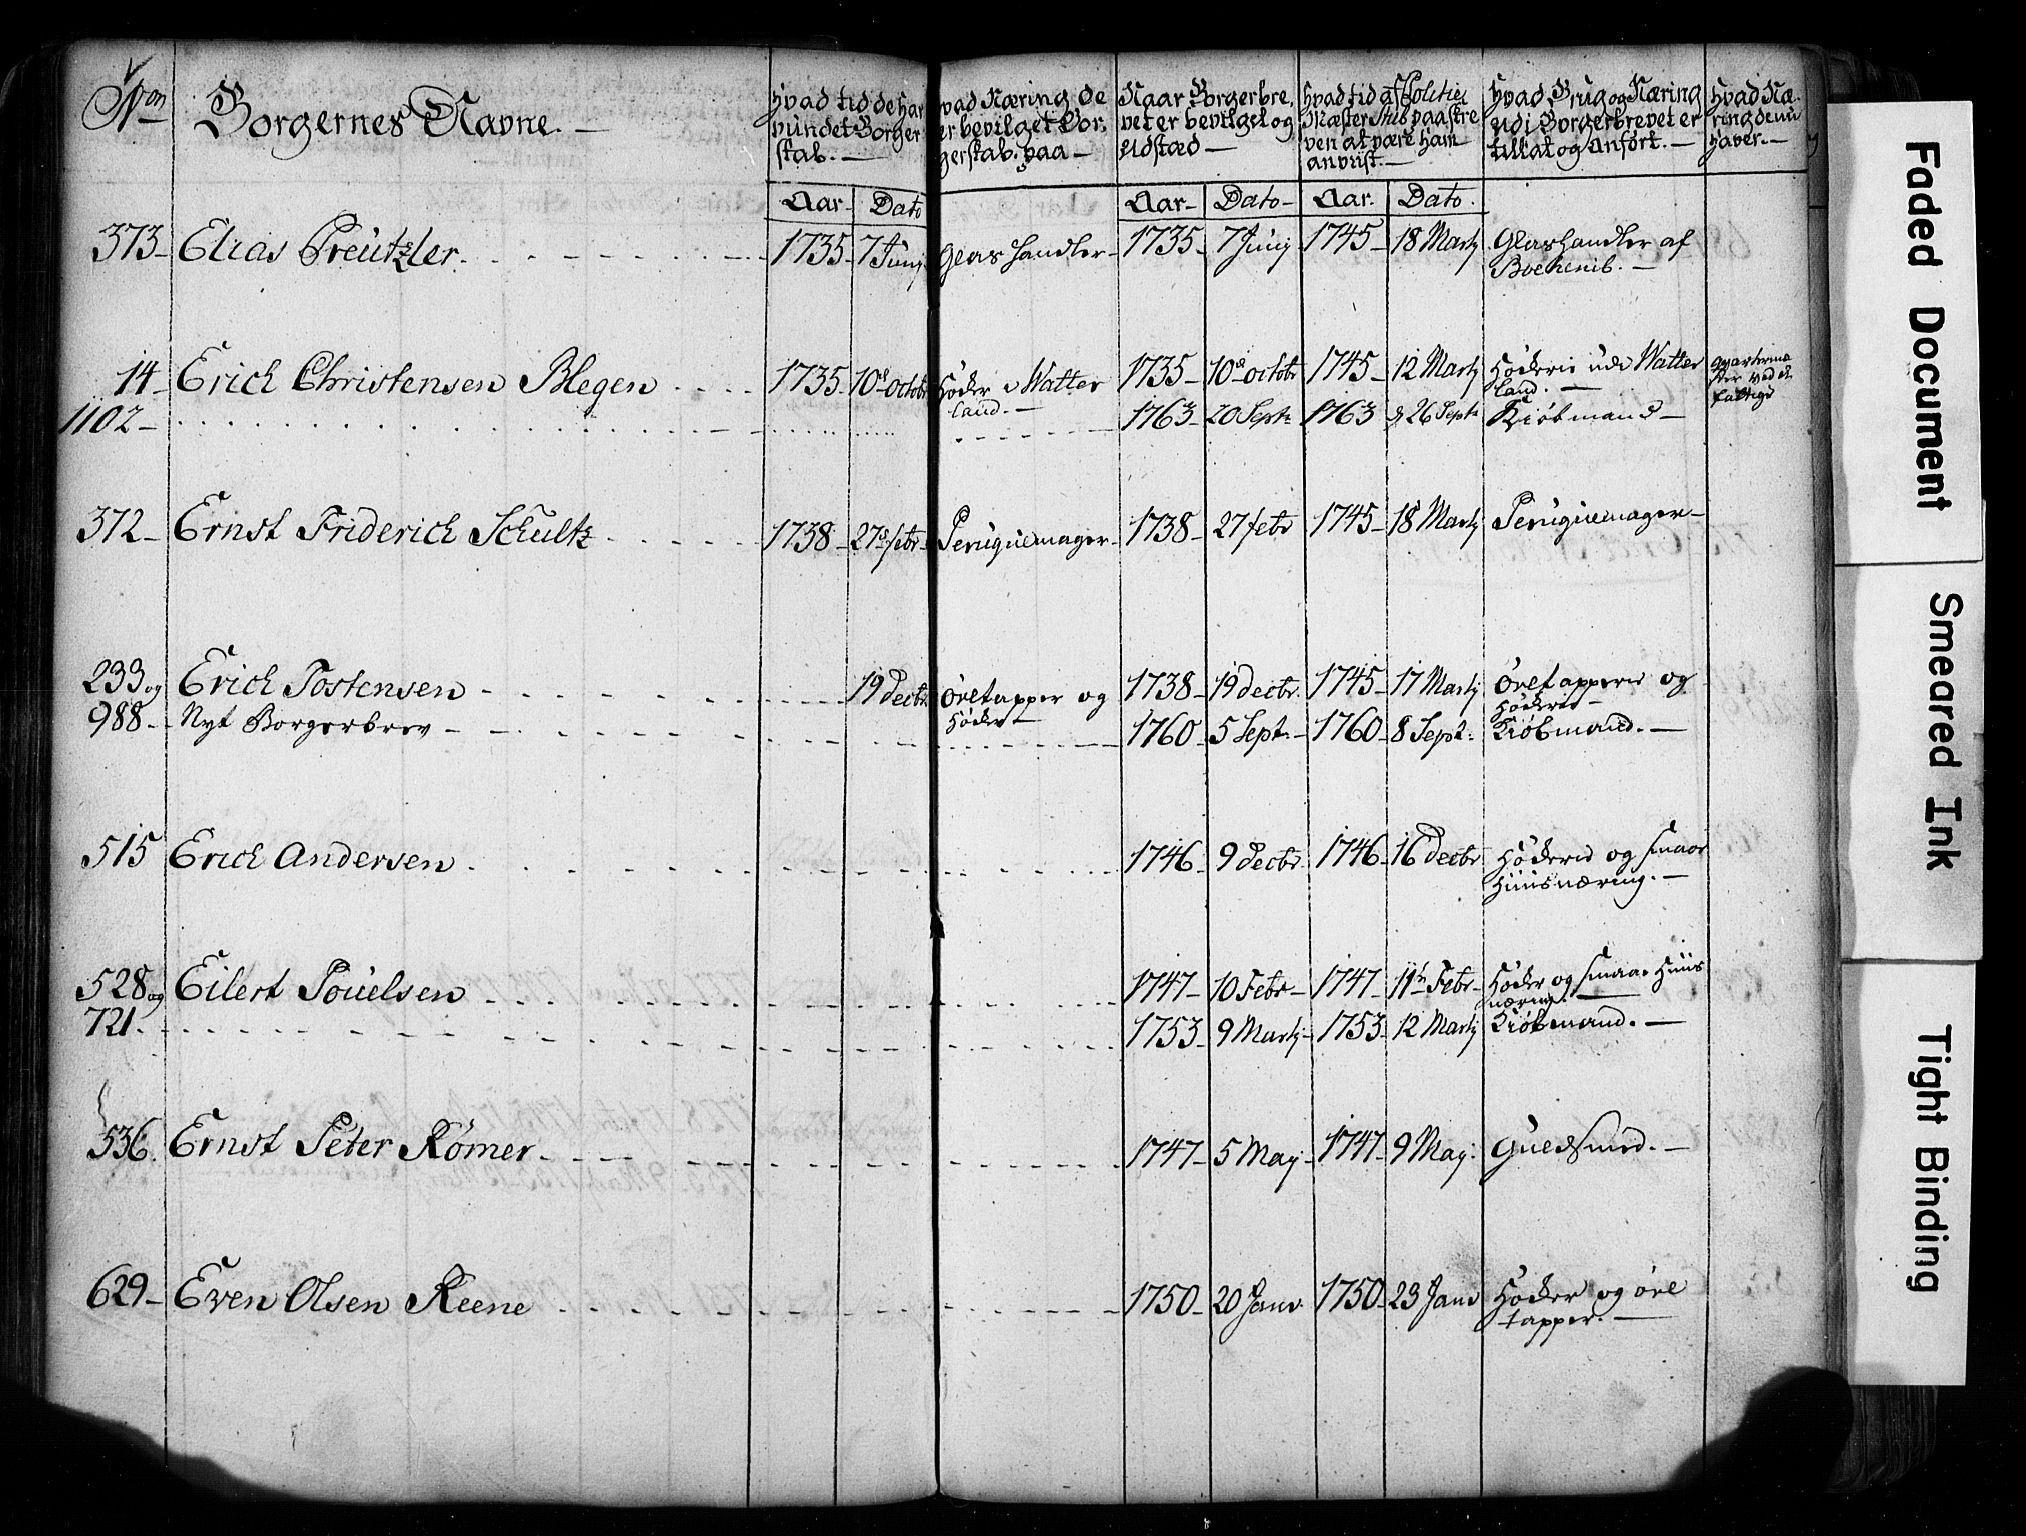 Non
Borgernes Navne. —
Hvad tid de har
vundet Borger
skab. —
Hvad Næring de
er bevilget Bor,
gerskab. paa —
Naar Borgerbre,
vet er bevilget og
Udstæd —
Hvad tid af Politie
Mæster Stub paaskre
ven at være ham
anviist. —
Hvad Brug og Næring
udi Borgerbrevet er
tillat og Anført. —
Hvad Næ,
ring de nu
haver. —
Aar — Dato
Aar — Dato —
Aar. Dato.
373 — Elias Preützler. 1735 — 7 Junij Glas Handler — 1735 — 7 Junij 1745 — 18 Martij Glashandler af
14 — Erich Christensen Blegen 1735 10de Octobr Høcker i Watter 1735 — 10de Octobr 1745 — 12 Martij Høckerie udi Watter
land. — land. —
1102 — 1763 — 20 Septr 1763 d 26 Septr Kiøbmand —
372 — Ernst Friderich Schultz 1738 — 27de febr — Peruquemager — 1738 — 27 febr 1745 — 18 Martij Peruquemager —
233 og Erich Tostensen — 19 Decbr Øretapper og 1738 — 19 decbr. 1745 — 17 Martij Øretapperie og
Høcker — Høckerie —
988 — Nyt Borgerbrev — 1760 — 5 Sept. — 1760 — 8 Sept. Kiøbmand. —
515 Erich Andersen 1746 — 9 decbr. 1746 — 16 Decbr Høckerie og smaae
Huusnæring. —
528 og Eilert Poüelsen 1747 — 10 Febr — 1747 — 11te Febr — Høcker og smaae Huus
næring. —
721. 1753 — 9 Martij — 1753 — 12 Martij Kiøbmand. —
536. Ernst Peter Rømer. 1747 — 5 Maij — 1747 — 9 Maij. Guldsmed. —
629 — Even Olsen Reene 1750 — 20 Janv. 1750 — 23 Janv Høcker og øel
tapper. —
Faded Document
Smeared Ink
Tight Binding